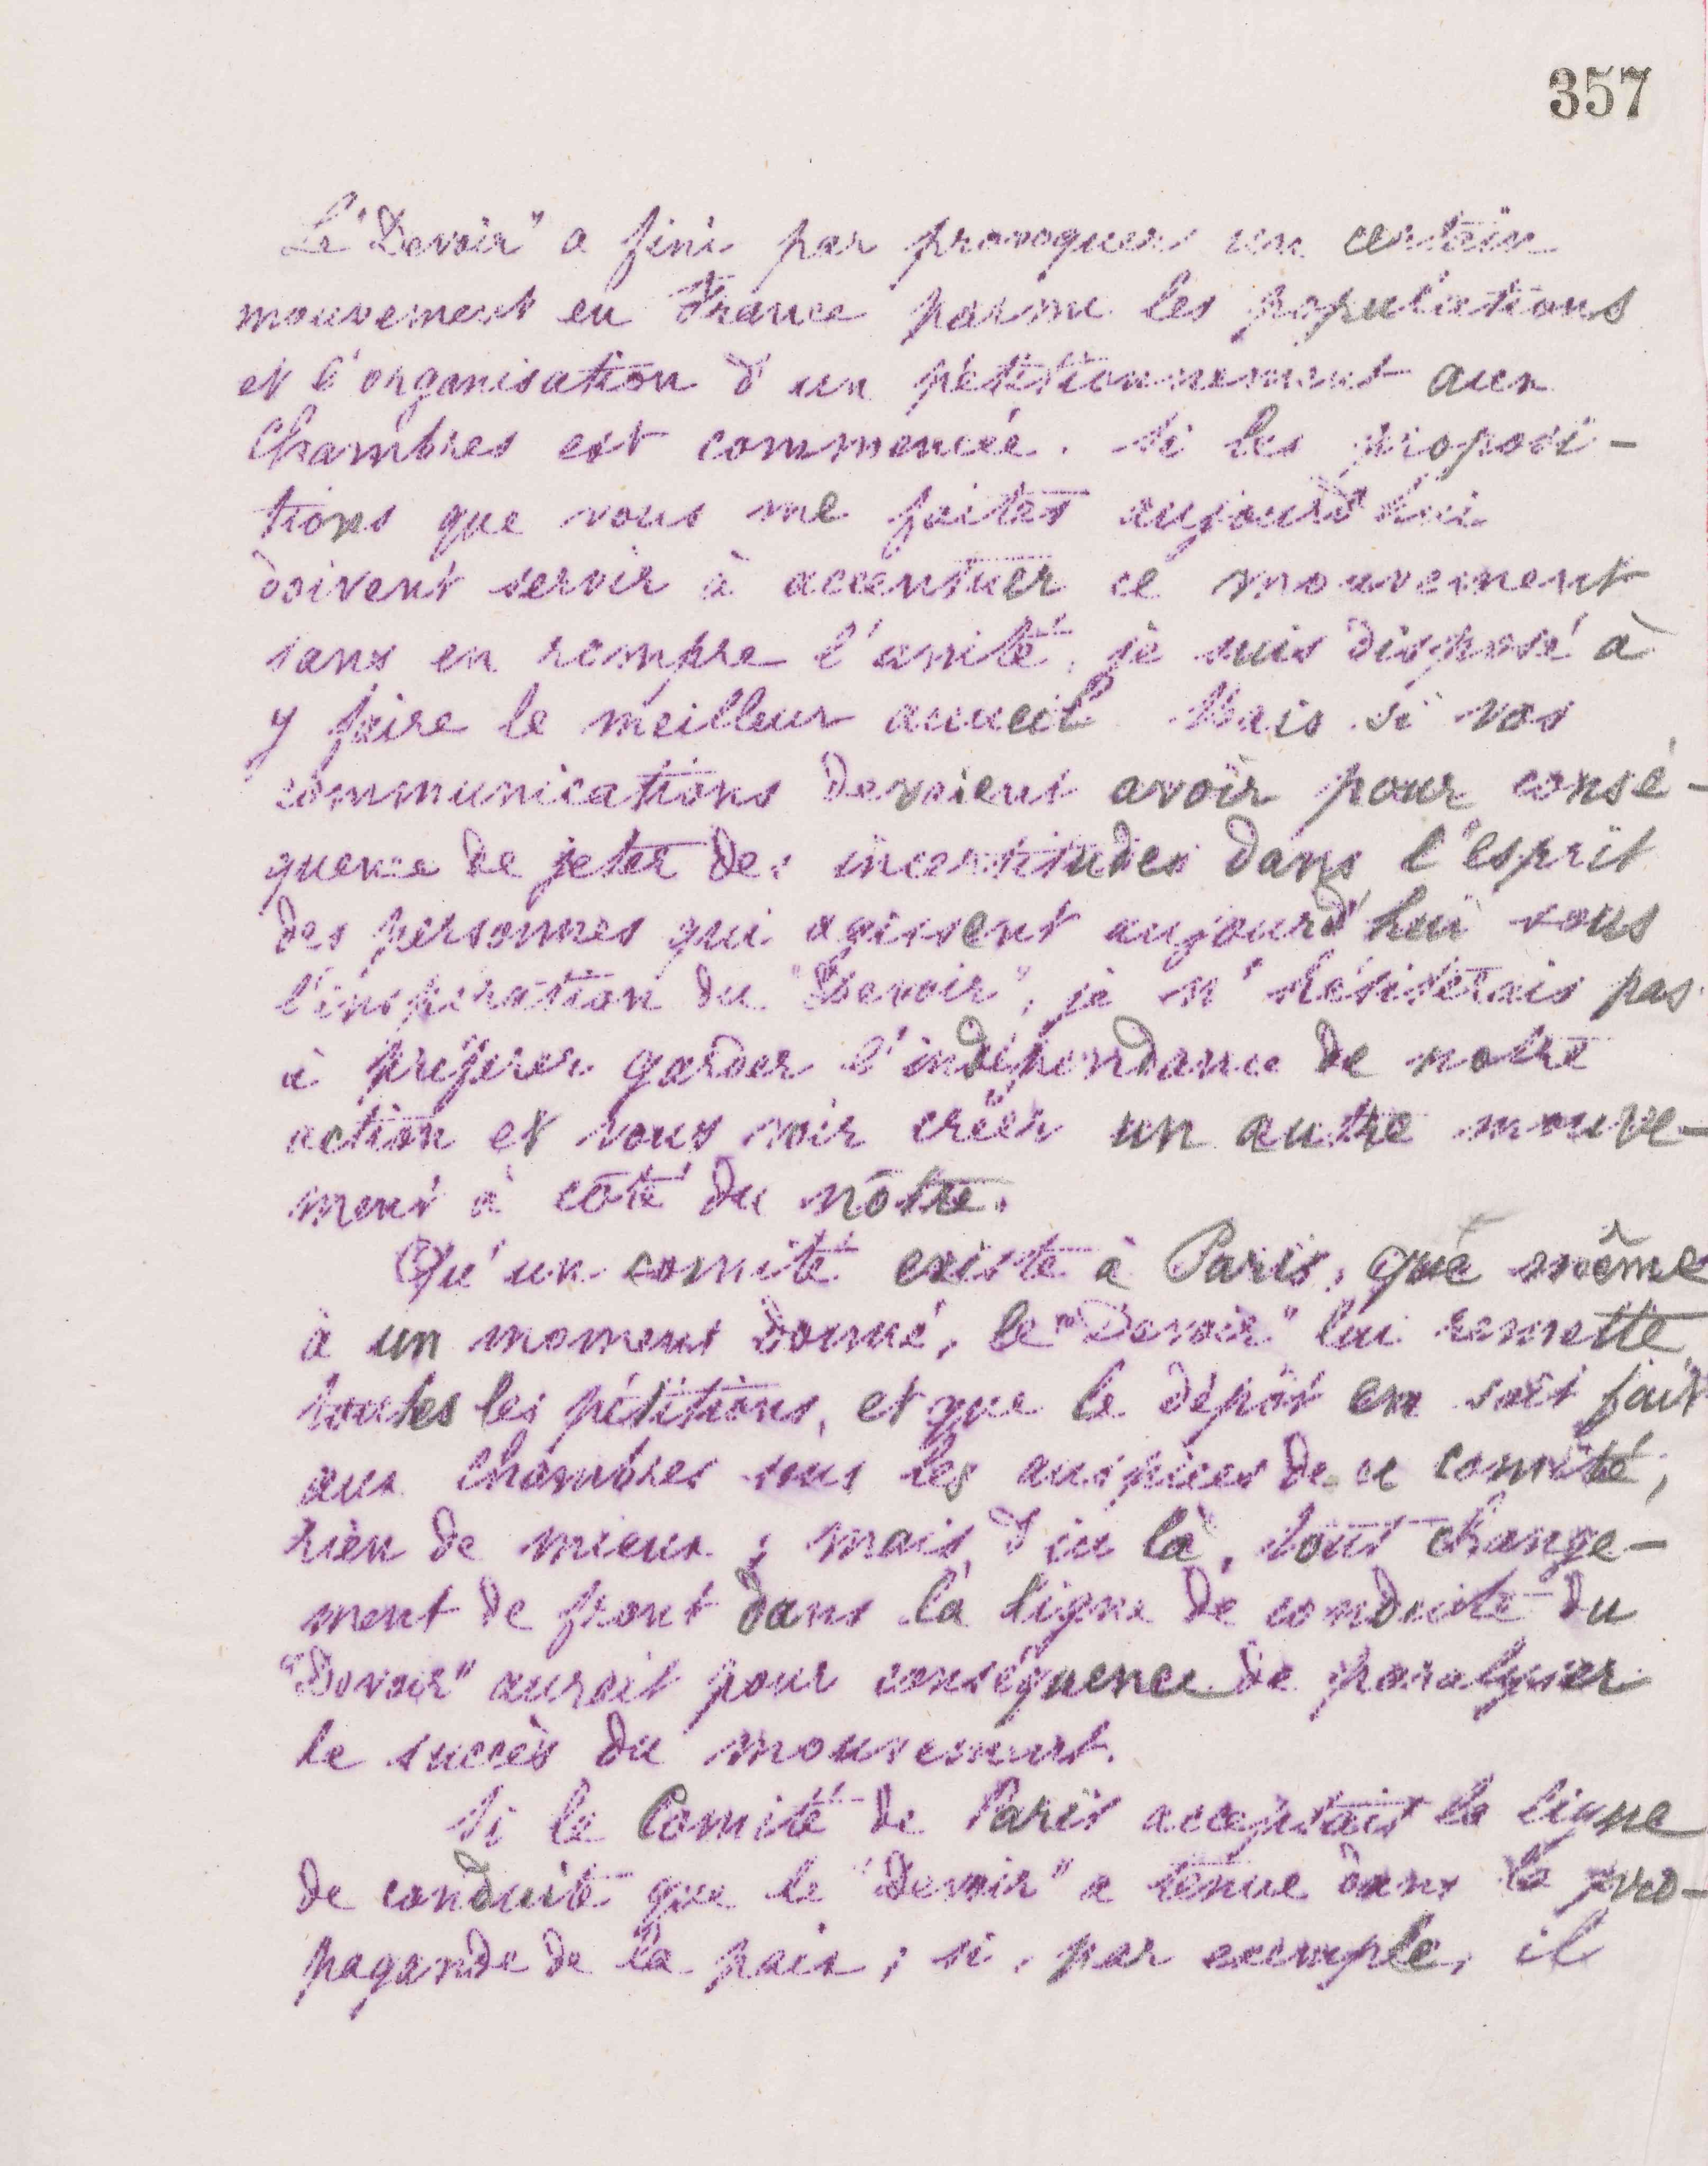 357
Le "Devoir" a fini par provoquer un certain
mouvement en France parmi les populations
et l'organisation d'un pétitionnement aux
Chambres est commencée. Si les proposi-
tions que vous me faites aujourd'hui
doivent servir à accentuer ce mouvement
sans en rompre l'unité, je suis disposé à
y faire le meilleur accueil. Mais si vos
communications devaient avoir pour consé-
quence de jeter des incertitudes dans l'esprit
des personnes qui agissent aujourd'hui sous
l'inspiration du "Devoir", je n'hésiterais pas
à préférer garder l'indépendance de notre
action et vous voir créer un autre mouve-
ment à côté du nôtre.
Qu'un comité existe à Paris, que même
à un moment donné, le "Devoir" lui remette
toutes les pétitions, et que le dépôt en soit fait
aux Chambres sous les auspices de ce comité,
rien de mieux ; mais d'ici là, tout change-
ment de front dans la ligne de conduite du
"Devoir" aurait pour conséquence de paralyser
le succès du mouvement.
Si le Comité de Paris acceptait la ligne
de conduite que le "Devoir" a tenue dans la pro-
pagande de la paix ; si, par exemple, il